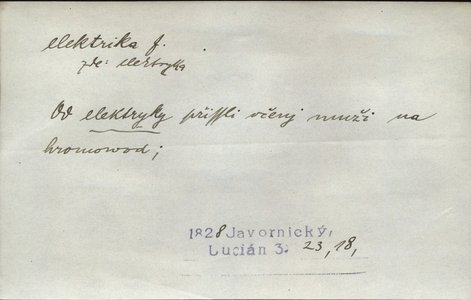 elektrika f.
zde: elektryka
Od elektryky přissli včenj muži na
hromowod;
1828 Javornický,
Lucián 3. 23, 18,